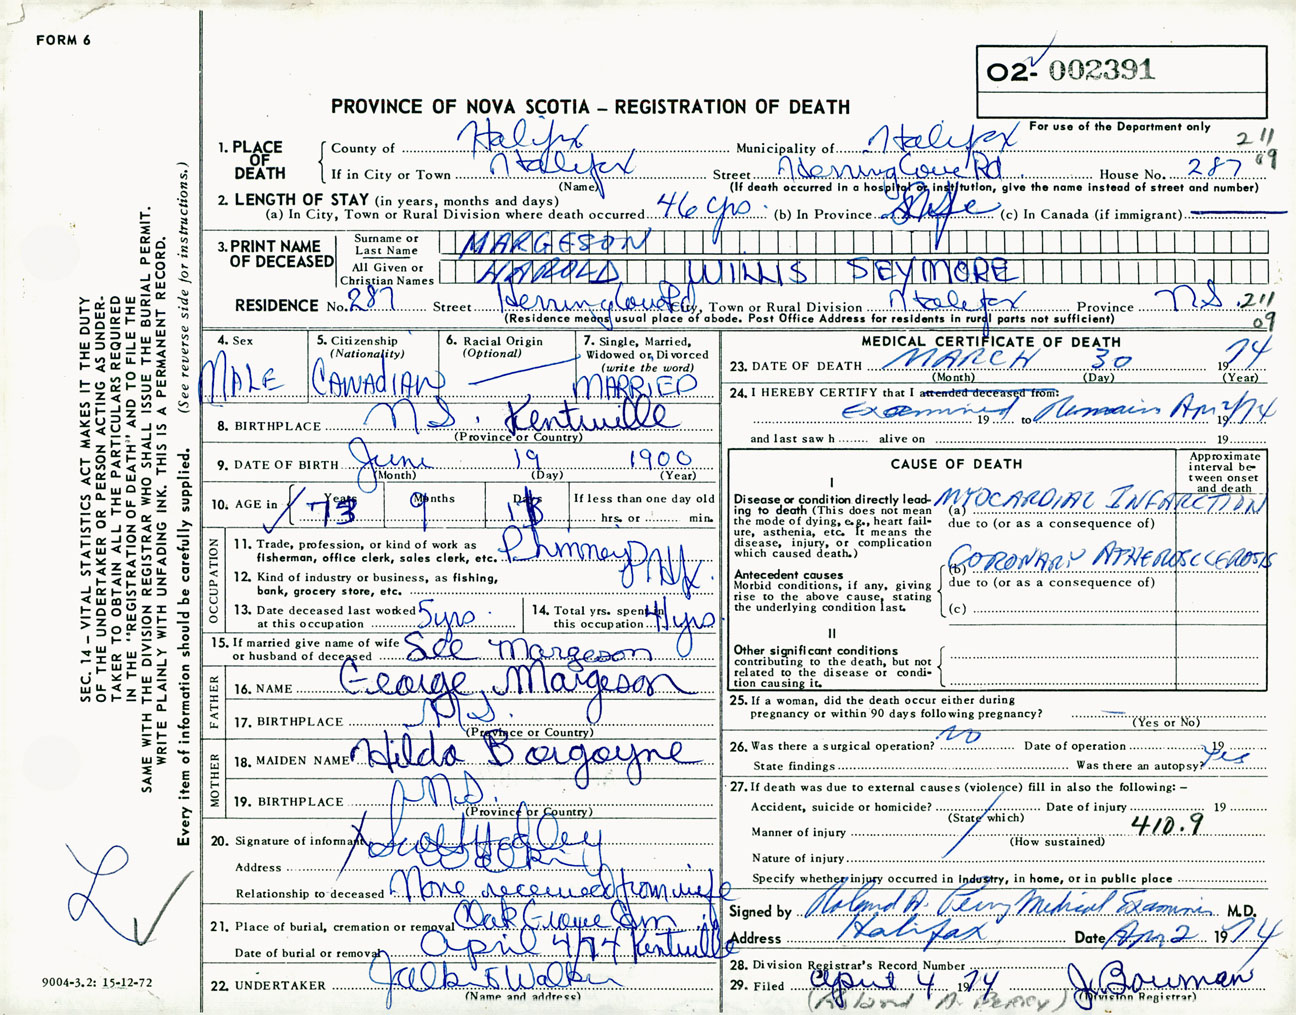 FORM 6
02- 002391
PROVINCE OF NOVA SCOTIA – REGISTRATION OF DEATH
For use of the Department only
211
09
1. PLACE OF DEATH
County of Halifax Municipality of Halifax
If in City or Town Halifax Street Herring Cove Rd House No. 287
(Name) (If death occurred in a hospital or institution, give the name instead of street and number)
2. LENGTH OF STAY (in years, months and days)
(a) In City, Town or Rural Division where death occurred 46 yrs. (b) In Province Life (c) In Canada (if immigrant)
3. PRINT NAME OF DECEASED
Surname or Last Name MARGESON
All Given or Christian Names HAROLD WILLIS SEYMORE
RESIDENCE No. 287 Street Herring Cove Rd City, Town or Rural Division Halifax Province N.S. 211
09
(Residence means usual place of abode. Post Office Address for residents in rural parts not sufficient)
4. Sex
MALE
5. Citizenship
(Nationality)
CANADIAN
6. Racial Origin
(Optional)
7. Single, Married,
Widowed or, Divorced
(write the word)
MARRIED
8. BIRTHPLACE N.S. Kentville
(Province or Country)
9. DATE OF BIRTH June 19 1900
(Month) (Day) (Year)
10. AGE in Years Months Days If less than one day old
73 9 hrs. or min.
OCCUPATION
11. Trade, profession, or kind of work as
fisherman, office clerk, sales clerk, etc.
12. Kind of industry or business, as fishing,
bank, grocery store, etc.
13. Date deceased last worked
at this occupation 5 yrs
14. Total yrs. spent in
this occupation 41 yrs
15. If married give name of wife
or husband of deceased See Margeson
FATHER
16. NAME George Margeson
17. BIRTHPLACE N.S.
(Province or Country)
MOTHER
18. MAIDEN NAME Hilda Borgoyne
19. BIRTHPLACE N.S.
(Province or Country)
20. Signature of informant
Address
Relationship to deceased None received from wife
21. Place of burial, cremation or removal Oak Grove Cem
Date of burial or removal April 4/74 Kentville
22. UNDERTAKER
(Name and address)
MEDICAL CERTIFICATE OF DEATH
23. DATE OF DEATH MARCH 30 1974
(Month) (Day) (Year)
24. I HEREBY CERTIFY that I attended deceased from:
Examined 19 to Remains Apr 2/74 19
and last saw h alive on 19
CAUSE OF DEATH
Approximate
interval be-
tween onset
and death
I
Disease or condition directly lead-
ing to death (This does not mean
the mode of dying, e.g., heart fail-
ure, asthenia, etc. It means the
disease, injury, or complication
which caused death.)
MYOCARDIAL INFARCTION
(a)
due to (or as a consequence of)
Antecedent causes
Morbid conditions, if any, giving
rise to the above cause, stating
the underlying condition last.
CORONARY ATHEROSCLEROSIS
(b)
due to (or as a consequence of)
(c)
II
Other significant conditions
contributing to the death, but not
related to the disease or condi-
tion causing it.
25. If a woman, did the death occur either during
pregnancy or within 90 days following pregnancy? —
(Yes or No)
26. Was there a surgical operation? NO Date of operation 19
State findings Was there an autopsy? Yes
27. If death was due to external causes (violence) fill in also the following: –
Accident, suicide or homicide? Date of injury 19
(State which)
Manner of injury 410.9
(How sustained)
Nature of injury
Specify whether injury occurred in industry, in home, or in public place
Signed by Roland A. Perry Medical Examiner M.D.
Address Halifax Date Apr 2 1974
28. Division Registrar's Record Number
29. Filed April 4 1974 J. Bowman
(Division Registrar)
(Roland A. PERRY)
SEC. 14 – VITAL STATISTICS ACT MAKES IT THE DUTY
OF THE UNDERTAKER OR PERSON ACTING AS UNDER-
TAKER TO OBTAIN ALL THE PARTICULARS REQUIRED
IN THE "REGISTRATION OF DEATH" AND TO FILE THE
SAME WITH THE DIVISION REGISTRAR WHO SHALL ISSUE THE BURIAL PERMIT.
WRITE PLAINLY WITH UNFADING INK. THIS IS A PERMANENT RECORD.
Every item of information should be carefully supplied. (See reverse side for instructions.)
9004-3.2: 15-12-72